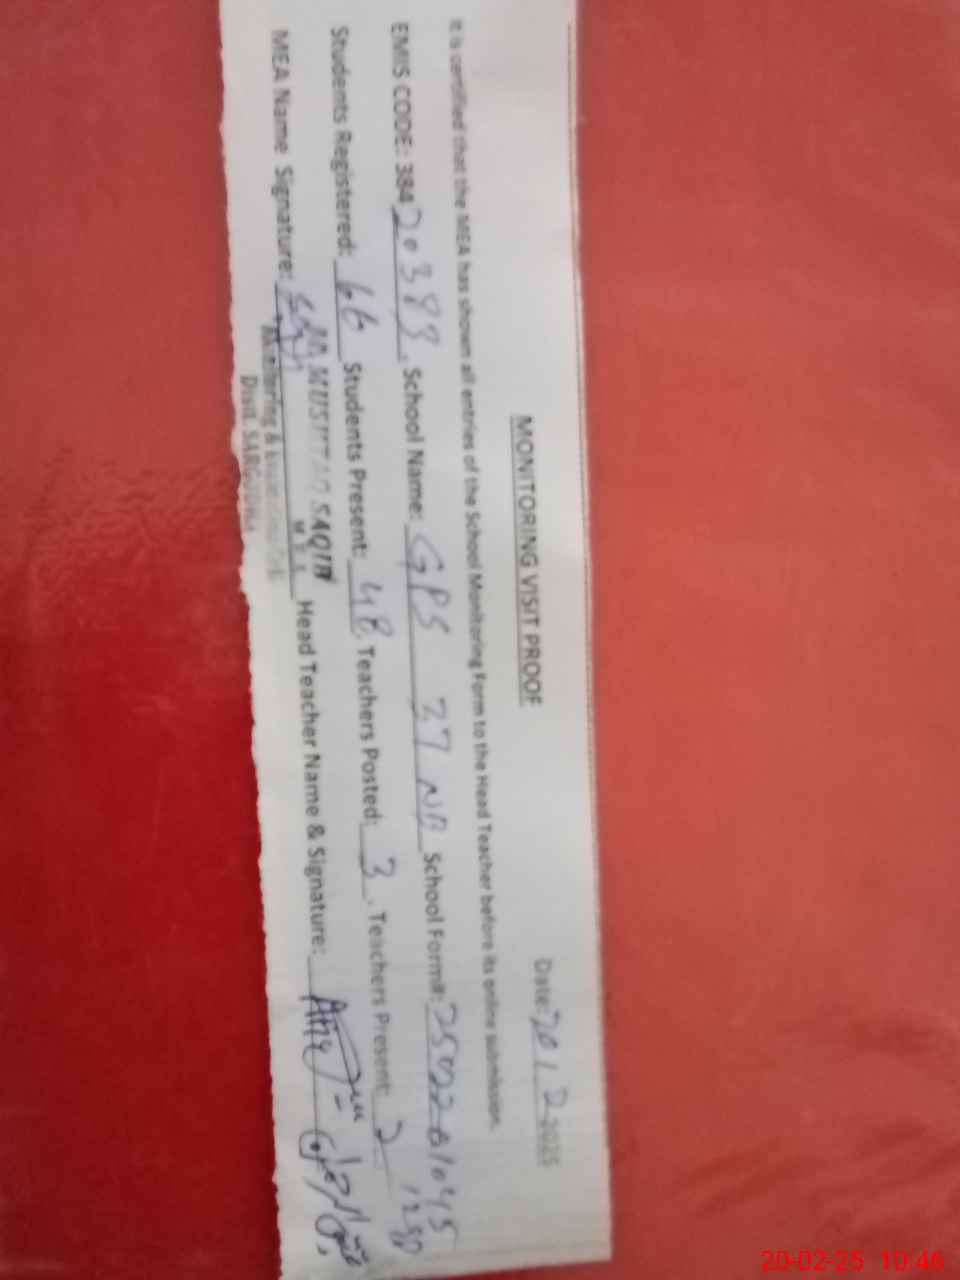 MONITORING VISIT PROOF
Date: 20/2-2025
It is certified that the MEA has shown all entries of the School Monitoring Form to the Head Teacher before its online submission.
EMIS CODE: 384 20 3 , School Name: GPS 27 NB School Form#:
Students Registered: 66 Students Present: 48 Teachers Posted: 3 , Teachers Present: 2
MEA Name Signature: SAQIB Head Teacher Name & Signature:
M E A
Monitoring &
Distt. SARGODHA
20-02-25 10:46